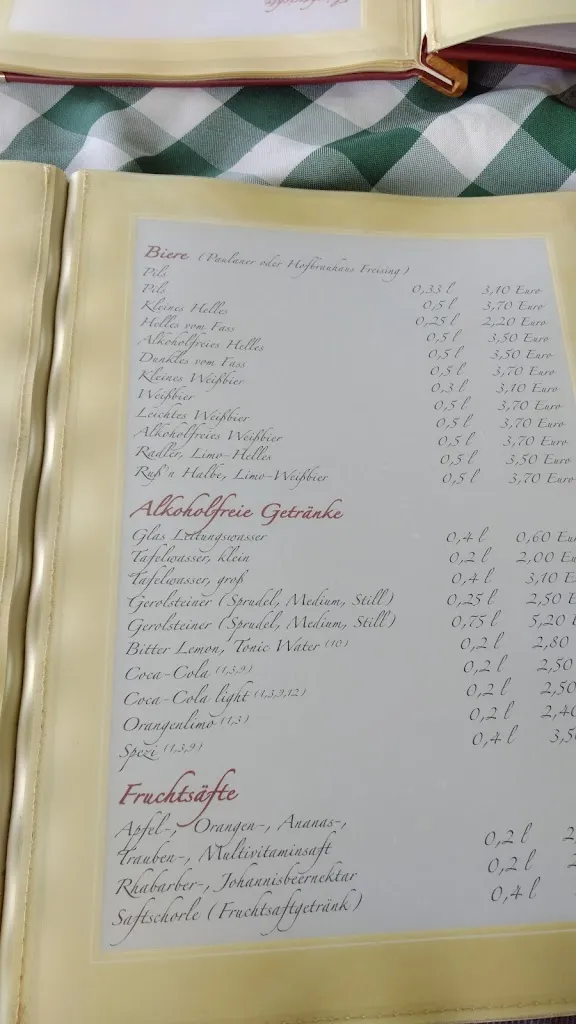 Biere (Paulaner oder Hofbrauhaus Freising)
Pils 0,33 l 3,10 Euro
Pils 0,5 l 3,70 Euro
Kleines Helles 0,25 l 2,20 Euro
Helles vom Fass 0,5 l 3,50 Euro
Alkoholfreies Helles 0,5 l 3,50 Euro
Dunkles vom Fass 0,5 l 3,70 Euro
Kleines Weißbier 0,3 l 3,10 Euro
Weißbier 0,5 l 3,70 Euro
Leichtes Weißbier 0,5 l 3,70 Euro
Alkoholfreies Weißbier 0,5 l 3,70 Euro
Radler, Limo-Helles 0,5 l 3,50 Euro
Ruß'n Halbe, Limo-Weißbier 0,5 l 3,70 Euro
Alkoholfreie Getränke
Glas Leitungswasser 0,4 l 0,60 Eu
Tafelwasser, klein 0,2 l 2,00 Eu
Tafelwasser, groß 0,4 l 3,10 E
Gerolsteiner (Sprudel, Medium, Still) 0,25 l 2,50 E
Gerolsteiner (Sprudel, Medium, Still) 0,75 l 5,20
Bitter Lemon, Tonic Water (10) 0,2 l 2,80
Coca-Cola (1,3,9) 0,2 l 2,50
Coca-Cola light (1,3,9,12) 0,2 l 2,50
Orangenlimo (1,3) 0,2 l 2,40
Spezi (1,3,9) 0,4 l 3,5
Fruchtsäfte
Apfel-, Orangen-, Ananas-,
Trauben-, Multivitaminsaft 0,2 l 2
Rhabarber-, Johannisbeernektar 0,2 l 2
Saftschorle (Fruchtsaftgetränk) 0,4 l